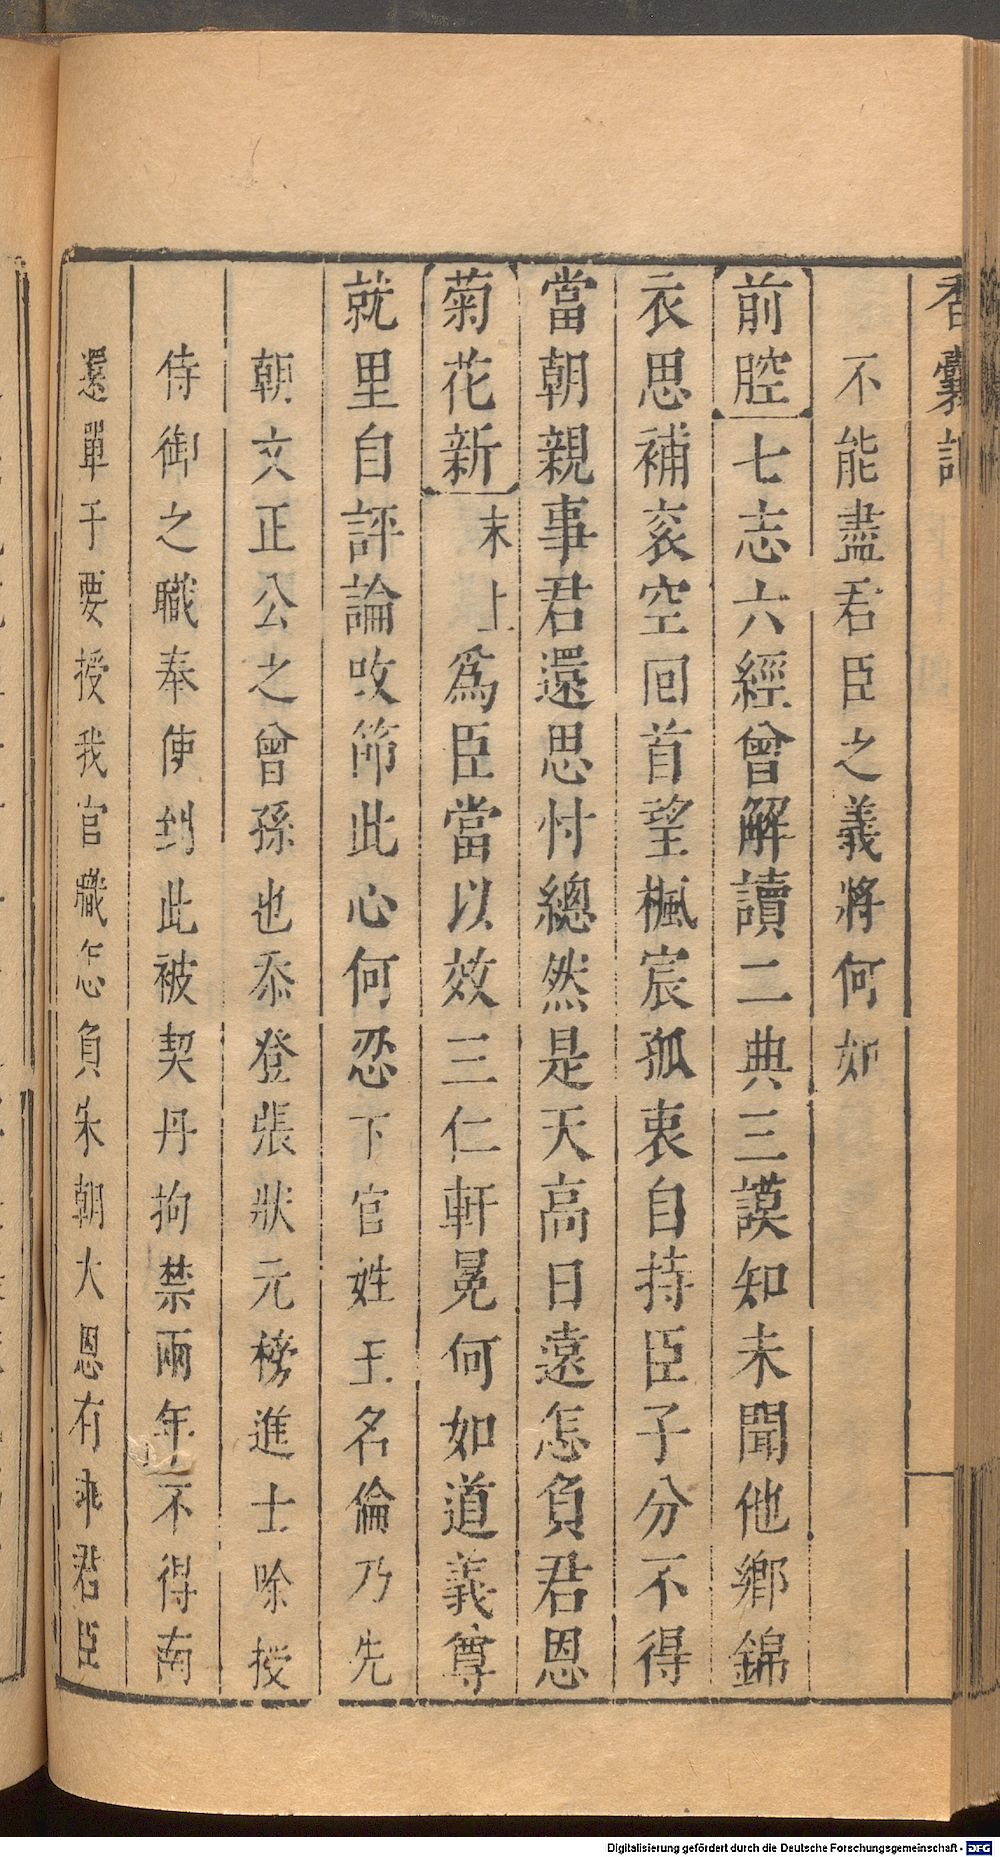 香囊記
不能盡君臣之義將何如
前腔七志六經曾解讀二典三謨知未聞他鄉錦
衣思補衮空回首望楓宸孤衷自持臣子分不得
當朝親事君還思忖總然是天高日遠怎負君恩
菊花新末上為臣當以效三仁軒冕何如道義尊
就里自評論改節此心何忍下官姓王名倫乃先
朝文正公之曾孫也忝登張狀元榜進士除授
侍御之職奉使到此被契丹拘禁兩年不得南
還單于要授我官職怎負朱朝大恩有乖君臣
Digitalisierung gefördert durch die Deutsche Forschungsgemeinschaft - DFG